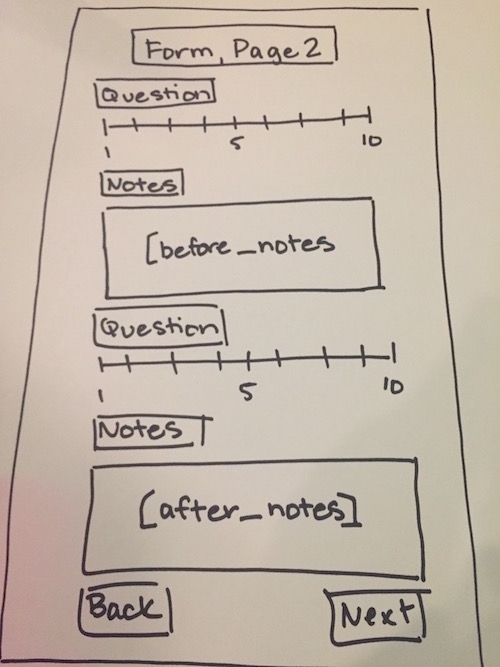 Form, Page 2
Question
1 5 10
Notes
[before_notes
Question
1 5 10
Notes
[after_notes]
Back Next